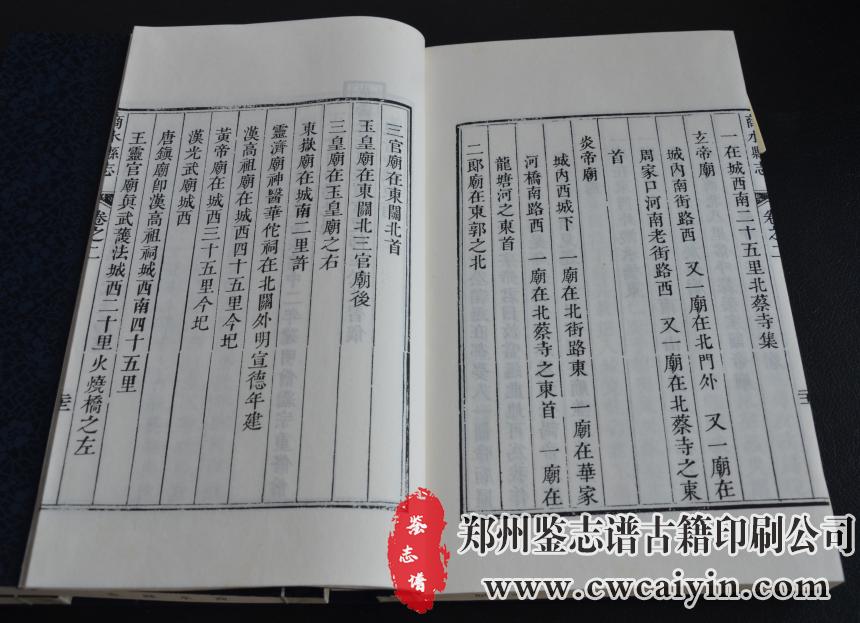 商水縣志
卷之二
一在城西南二十五里北蔡寺集
玄帝廟
城内南街路西 又一廟在北門外 又一廟在
周家口河南老街路西 又一廟在北蔡寺之東
首
炎帝廟
城内西城下 一廟在北街路東 一廟在華家
河橋南路西 一廟在北蔡寺之東首 一廟在
龍塘河之東首
二郎廟在東郭之北
三官廟在東關北首
玉皇廟在東關北三官廟後
三皇廟在玉皇廟之右
東嶽廟在城南二里許
靈濟廟神醫華佗祠在北關外明宣德年建
漢高祖廟在城西四十五里今圮
黃帝廟在城西三十五里今圮
漢光武廟城西
唐鎮廟卽漢高祖祠城西南四十五里
王靈官廟眞武護法城西二十里火燒橋之左
商水縣志
卷之二
鉴志谱
郑州鉴志谱古籍印刷公司
www.cwcaiyin.com